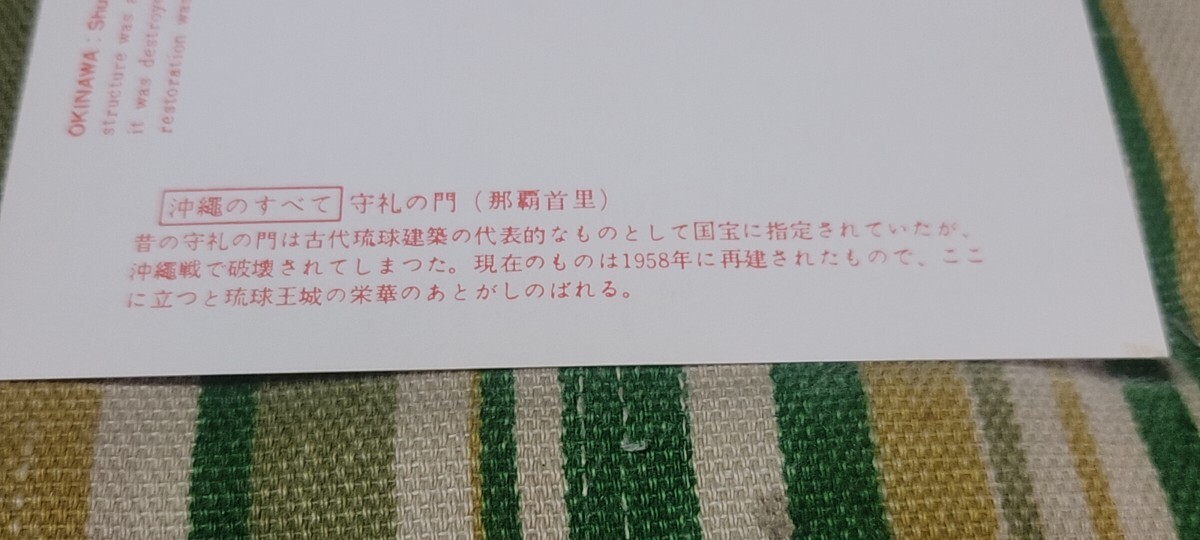 OKINAWA : Shu
structure was
it was destroye
restoration was
沖繩のすべて 守礼の門（那覇首里）
昔の守礼の門は古代琉球建築の代表的なものとして国宝に指定されていたが、
沖繩戦で破壊されてしまつた。現在のものは1958年に再建されたもので、ここ
に立つと琉球王城の栄華のあとがしのばれる。